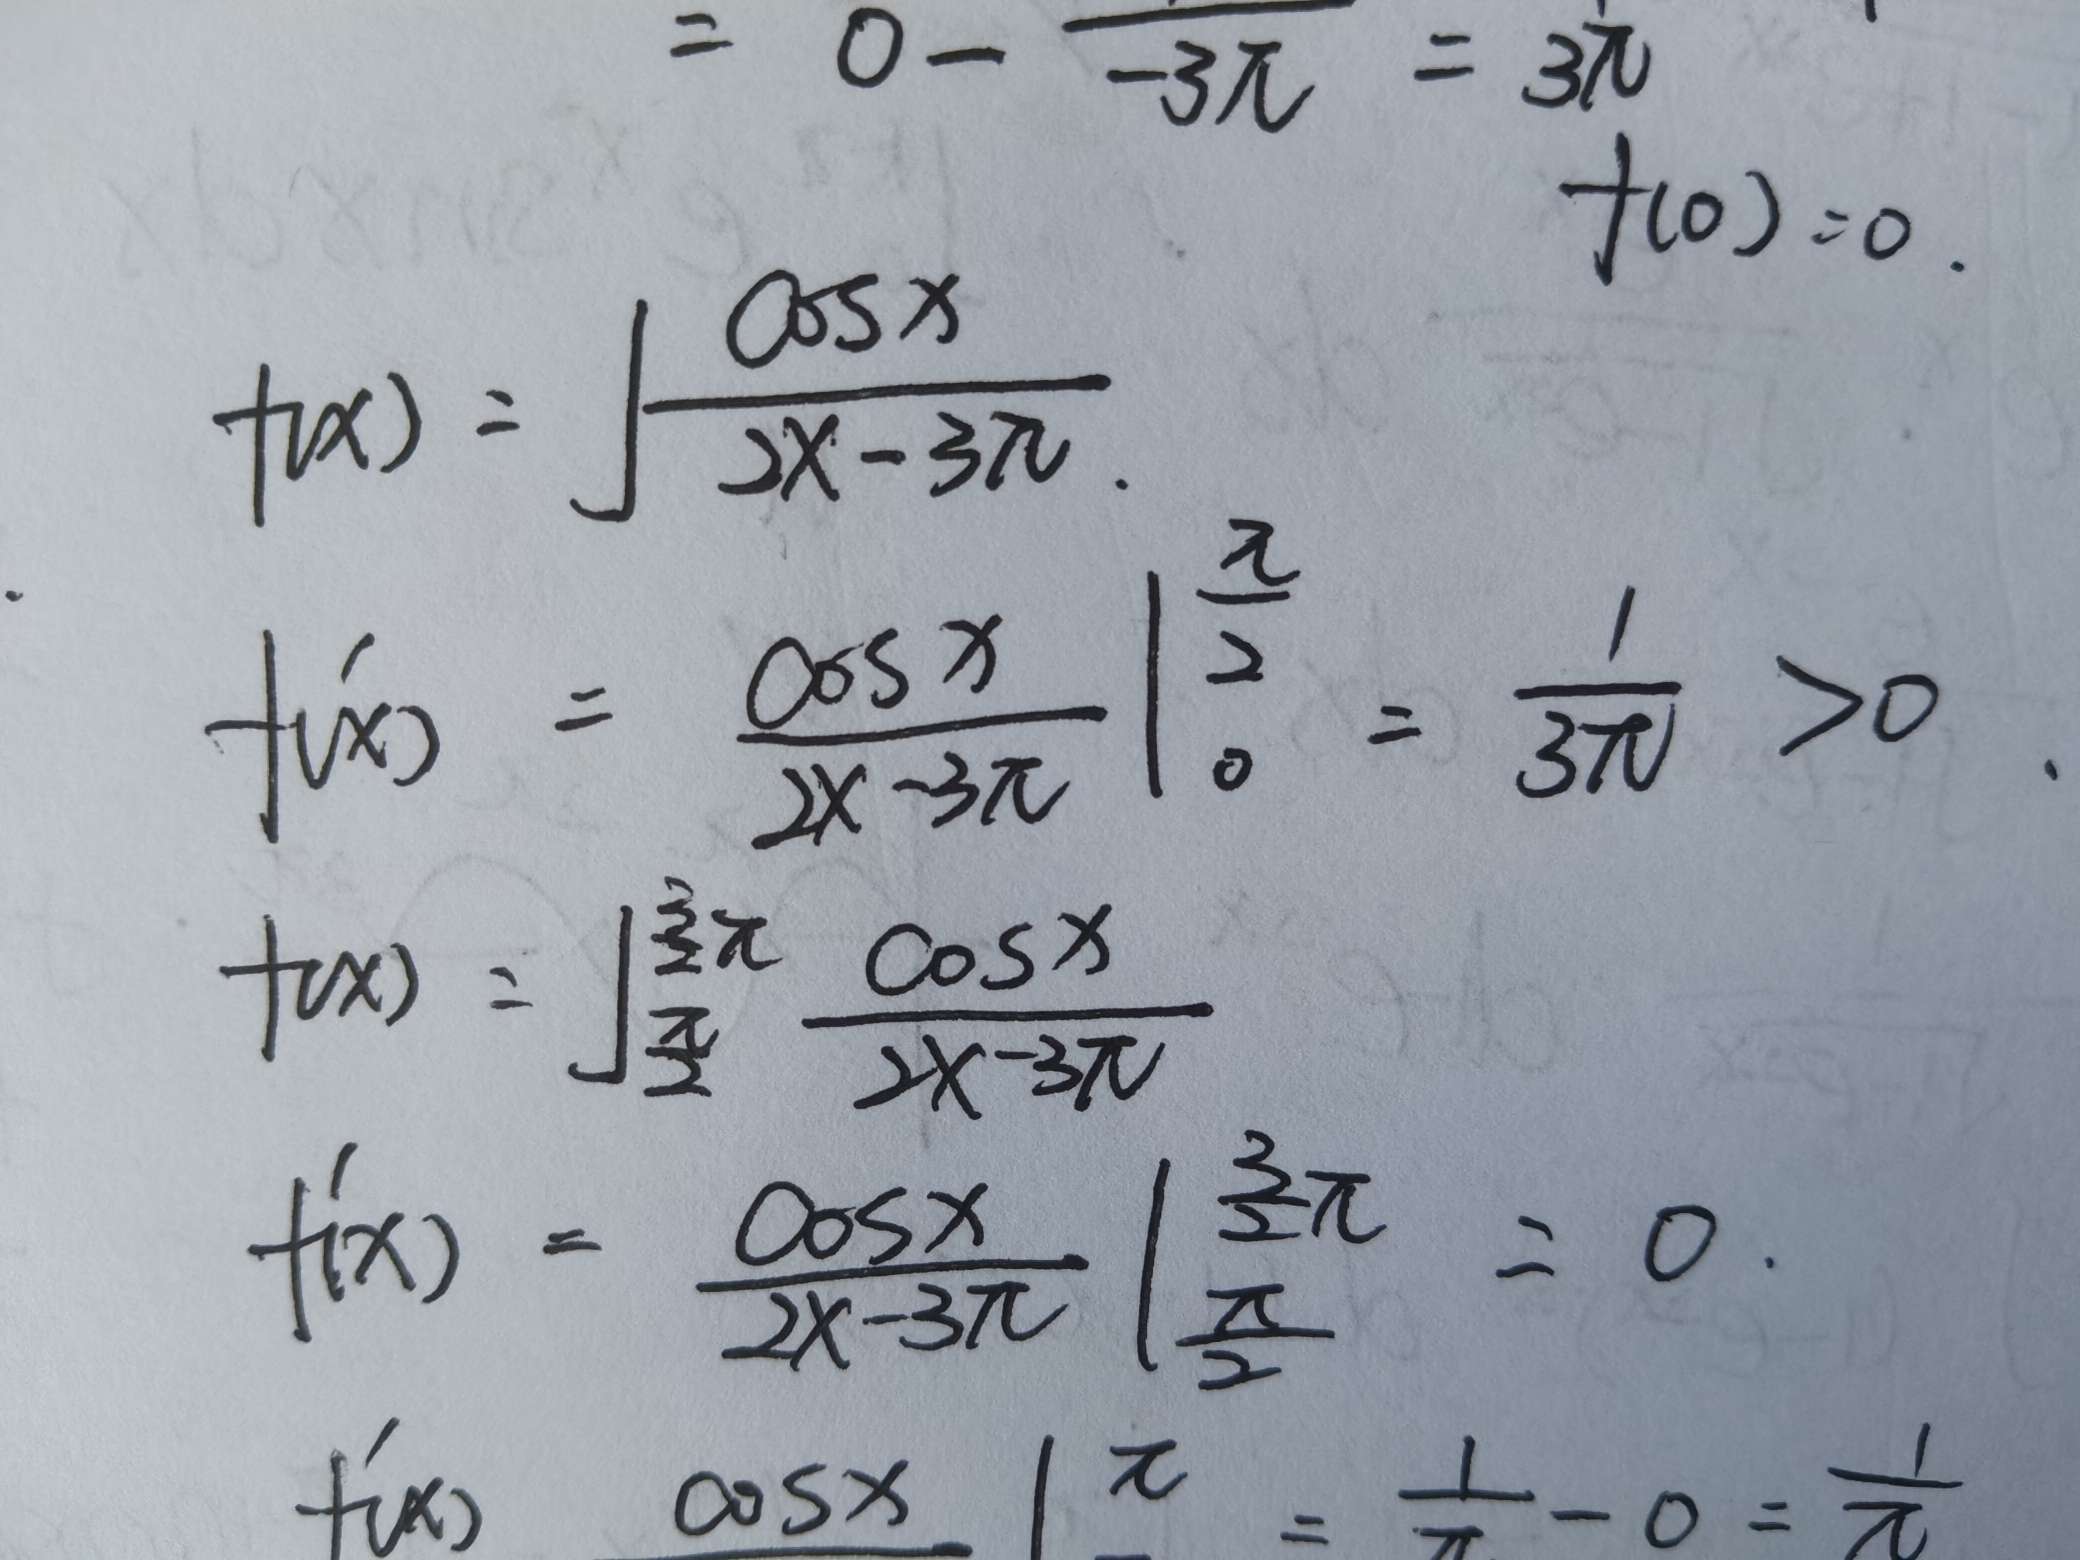 = 0 - 1/(-3π) = 1/(3π)
f(0) = 0.
f(x) = ∫ cosx/(2x-3π).
f'(x) = cosx/(2x-3π) |_0^(π/2) = 1/(3π) >0
f(x) = ∫_(π/2)^(3/2 π) cosx/(2x-3π)
f'(x) = cosx/(2x-3π) |_(π/2)^(3/2 π) = 0.
f'(x) cosx | π = 1/π - 0 = 1/π